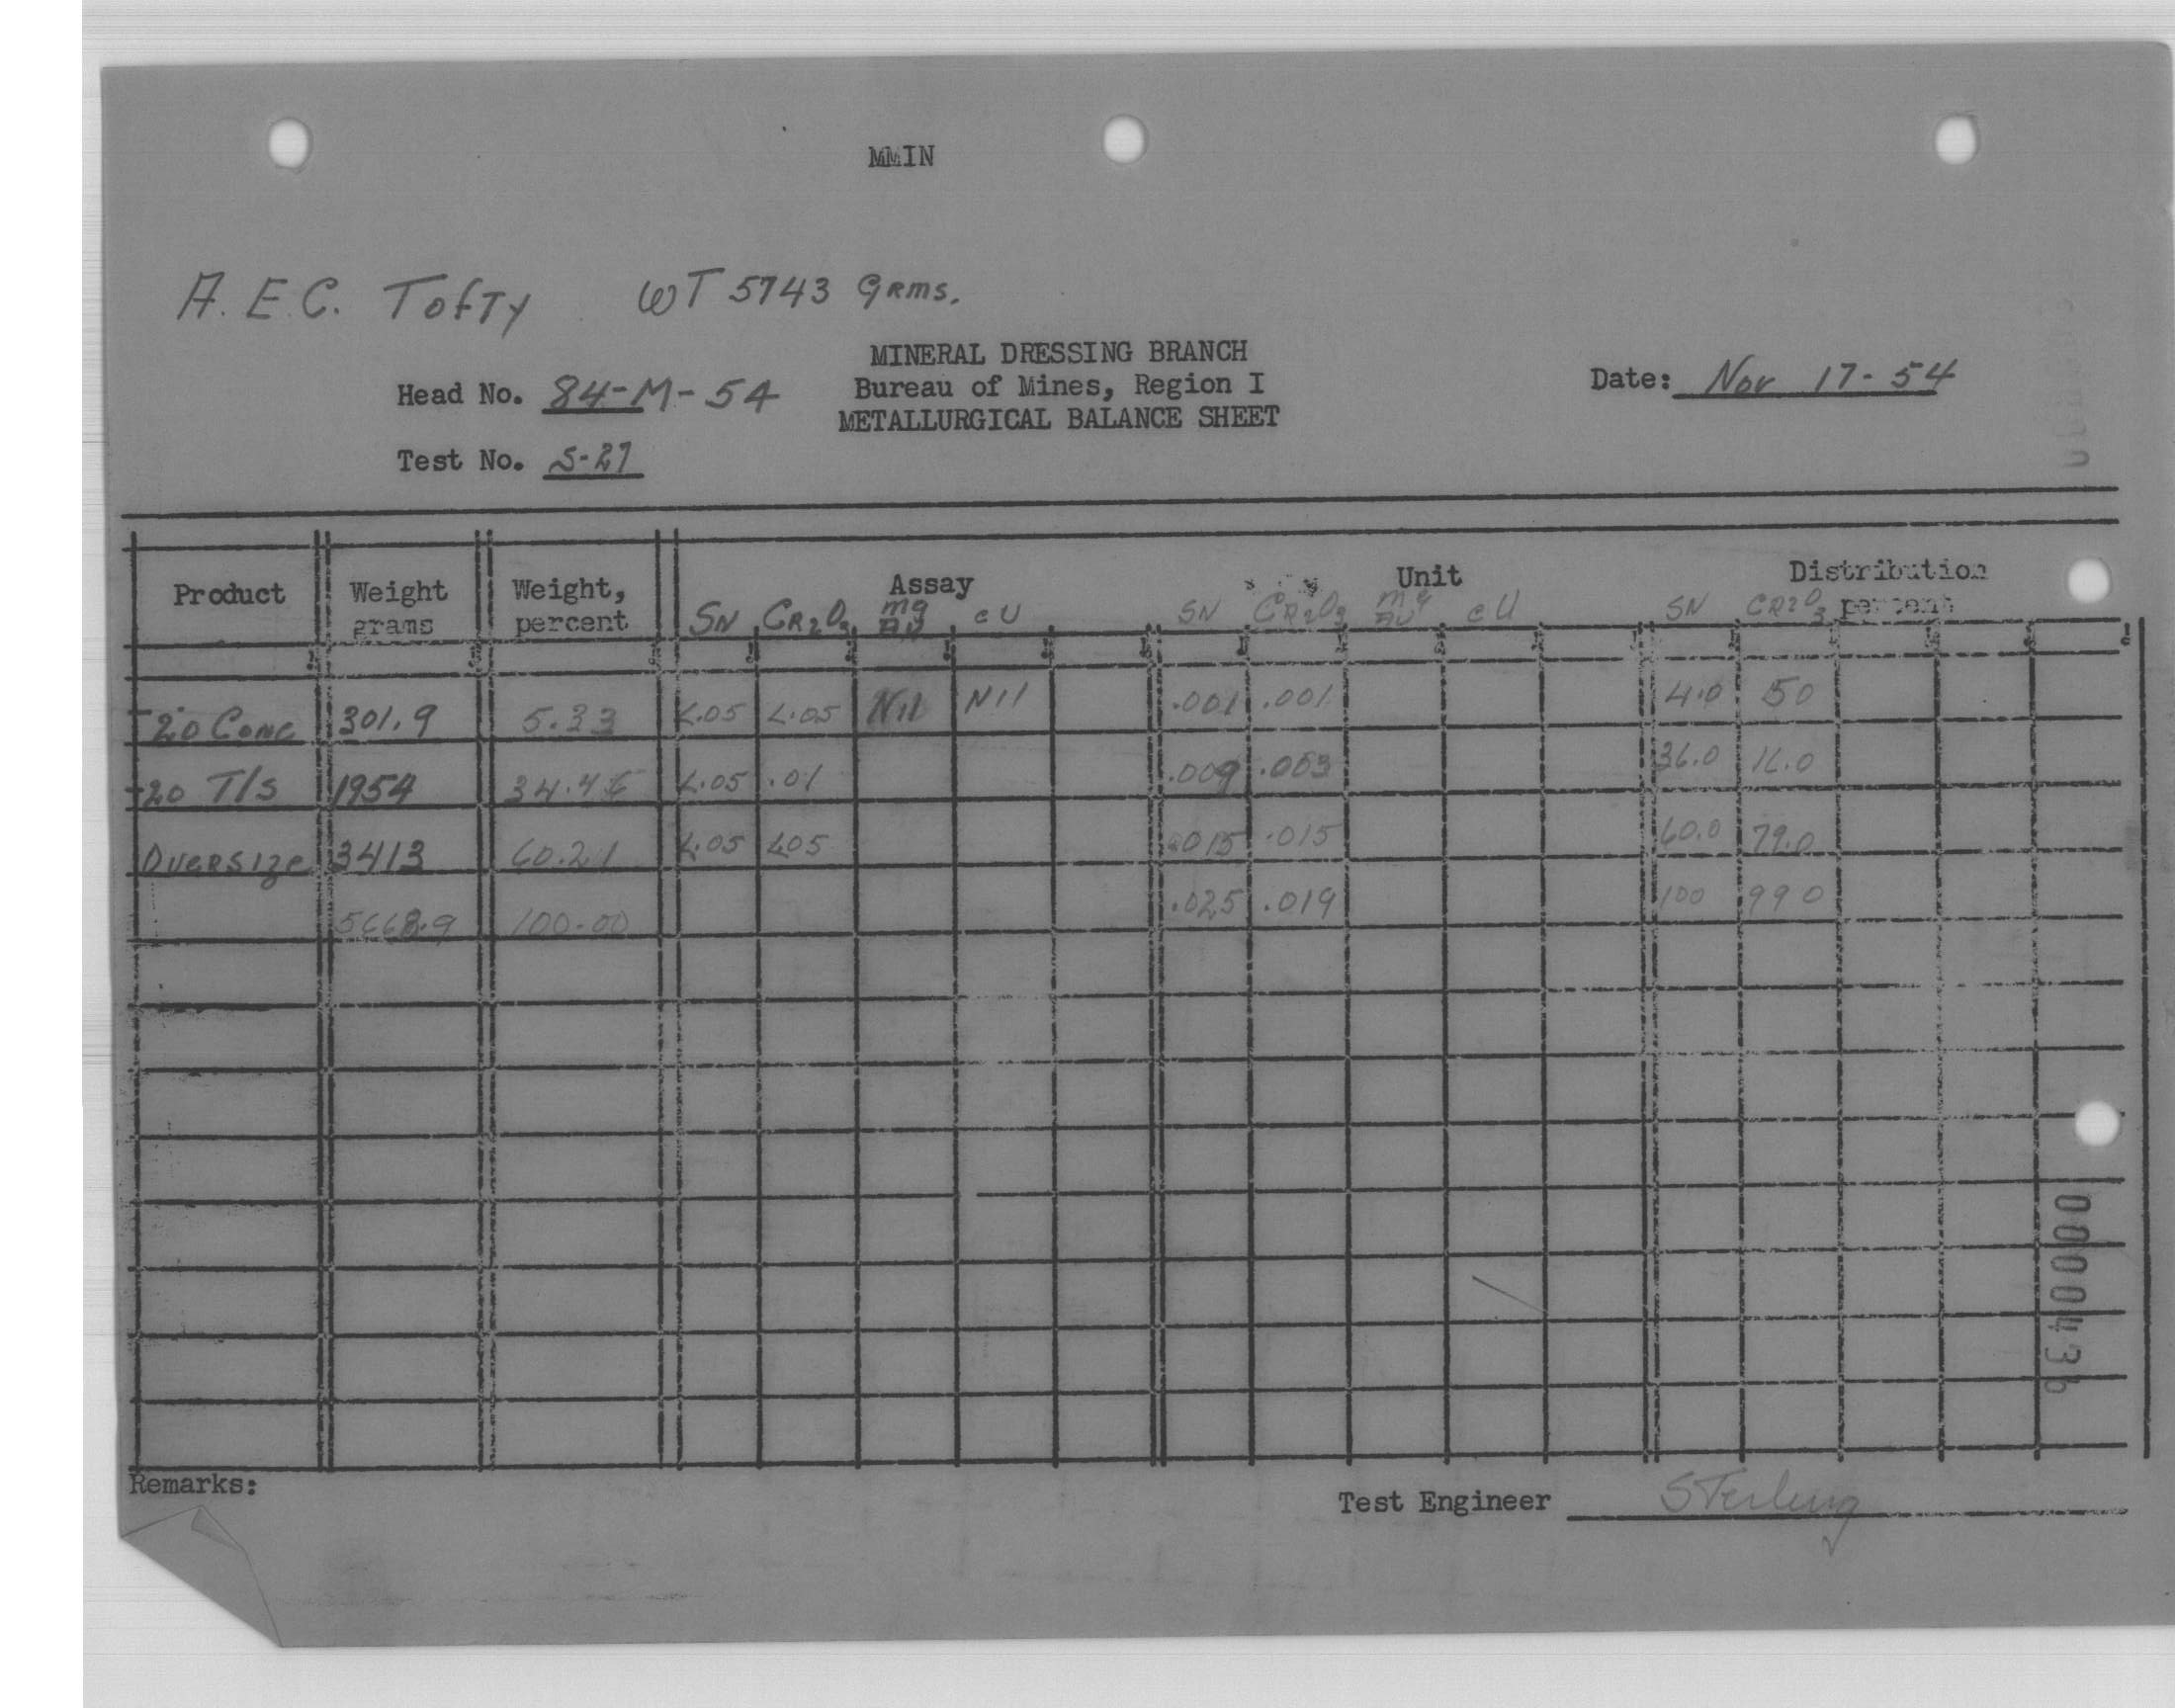 MMIN
A.E.C. Tofty WT 5743 Grms.
MINERAL DRESSING BRANCH
Head No. 84-M-54 Bureau of Mines, Region I Date: Nov 17-54
METALLURGICAL BALANCE SHEET
Test No. S-27
Product Weight grams Weight, percent Assay Unit Distribution percent
SN CR2O3 mg AU eU SN CR2O3 mg AU eU SN CR2O3
-20 Conc 301.9 5.33 <.05 <.05 Nil Nil .001 .001 4.0 50
-20 T/s 1954 34.46 <.05 .01 .009 .003 36.0 16.0
Oversize 3413 60.21 <.05 <05 .015 .015 60.0 79.0
5668.9 100.00 .025 .019 100 990
Remarks:
Test Engineer Sterling
000043